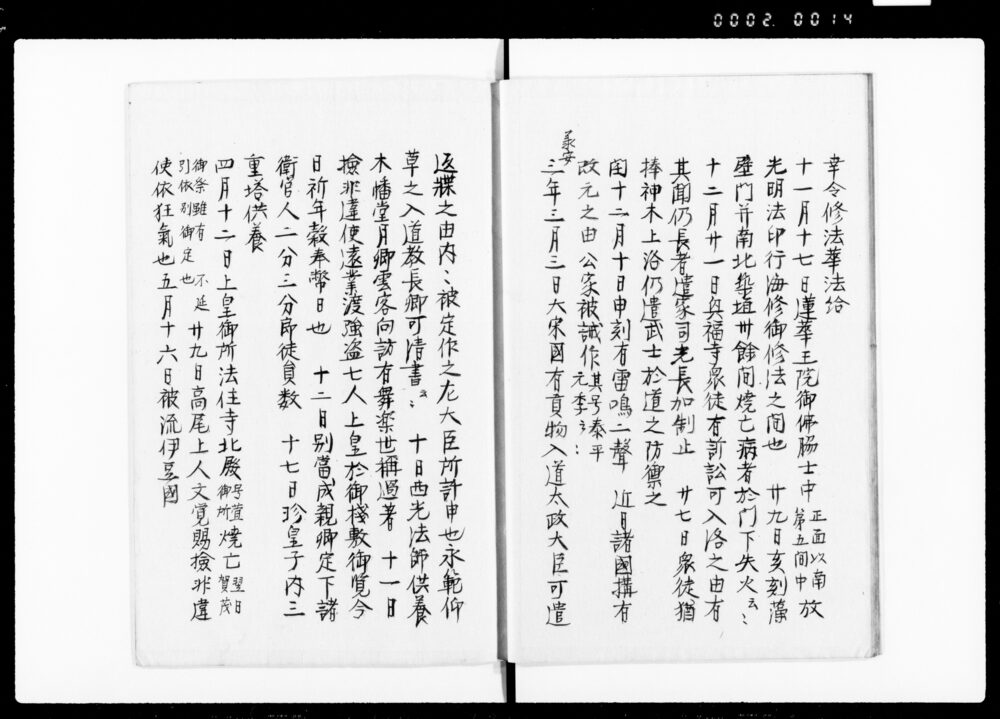 0002.0014
幸令修法華法給
十一月十七日蓮華王院御佛腸士中 正面以南 第五間中 放
光明法印行海修御修法之間也 廿九日亥刻藻
壁門并南北築垣卅餘間燒亡病者於門下失火云〻
十二月廿一日興福寺衆徒有訴訟可入洛之由有
其聞仍長者遣家司光長加制止 廿七日衆徒猶
捧神木上洛仍遣武士於道之防禦之
閏十二月十日申刻有雷鳴二聲 近日諸國搆有
改元之由公家被誡作 其号泰平 元季云〻
承安
三年三月三日大宋國有貢物入道太政大臣可遣
返牒之由内〻被定作之左大臣所計申也永範仰
草之入道教長卿可清書云〻 十日西光法師供養
木幡堂月卿雲客向訪有舞楽世稱過著 十一日
撿非違使遠業渡強盗七人上皇於御棧敷御覧今
日祈年穀奉幣日也 十二日別當成親卿定下諸
衛官人二分三分郎徒員数 十七日珍皇子内三
重塔供養
四月十二日上皇御所法住寺北殿 号萱御所 燒亡 翌日賀茂
御祭雖有 不延 別依別御定也 廿九日高尾上人文覚賜撿非違
使依狂氣也五月十六日被流伊豆國